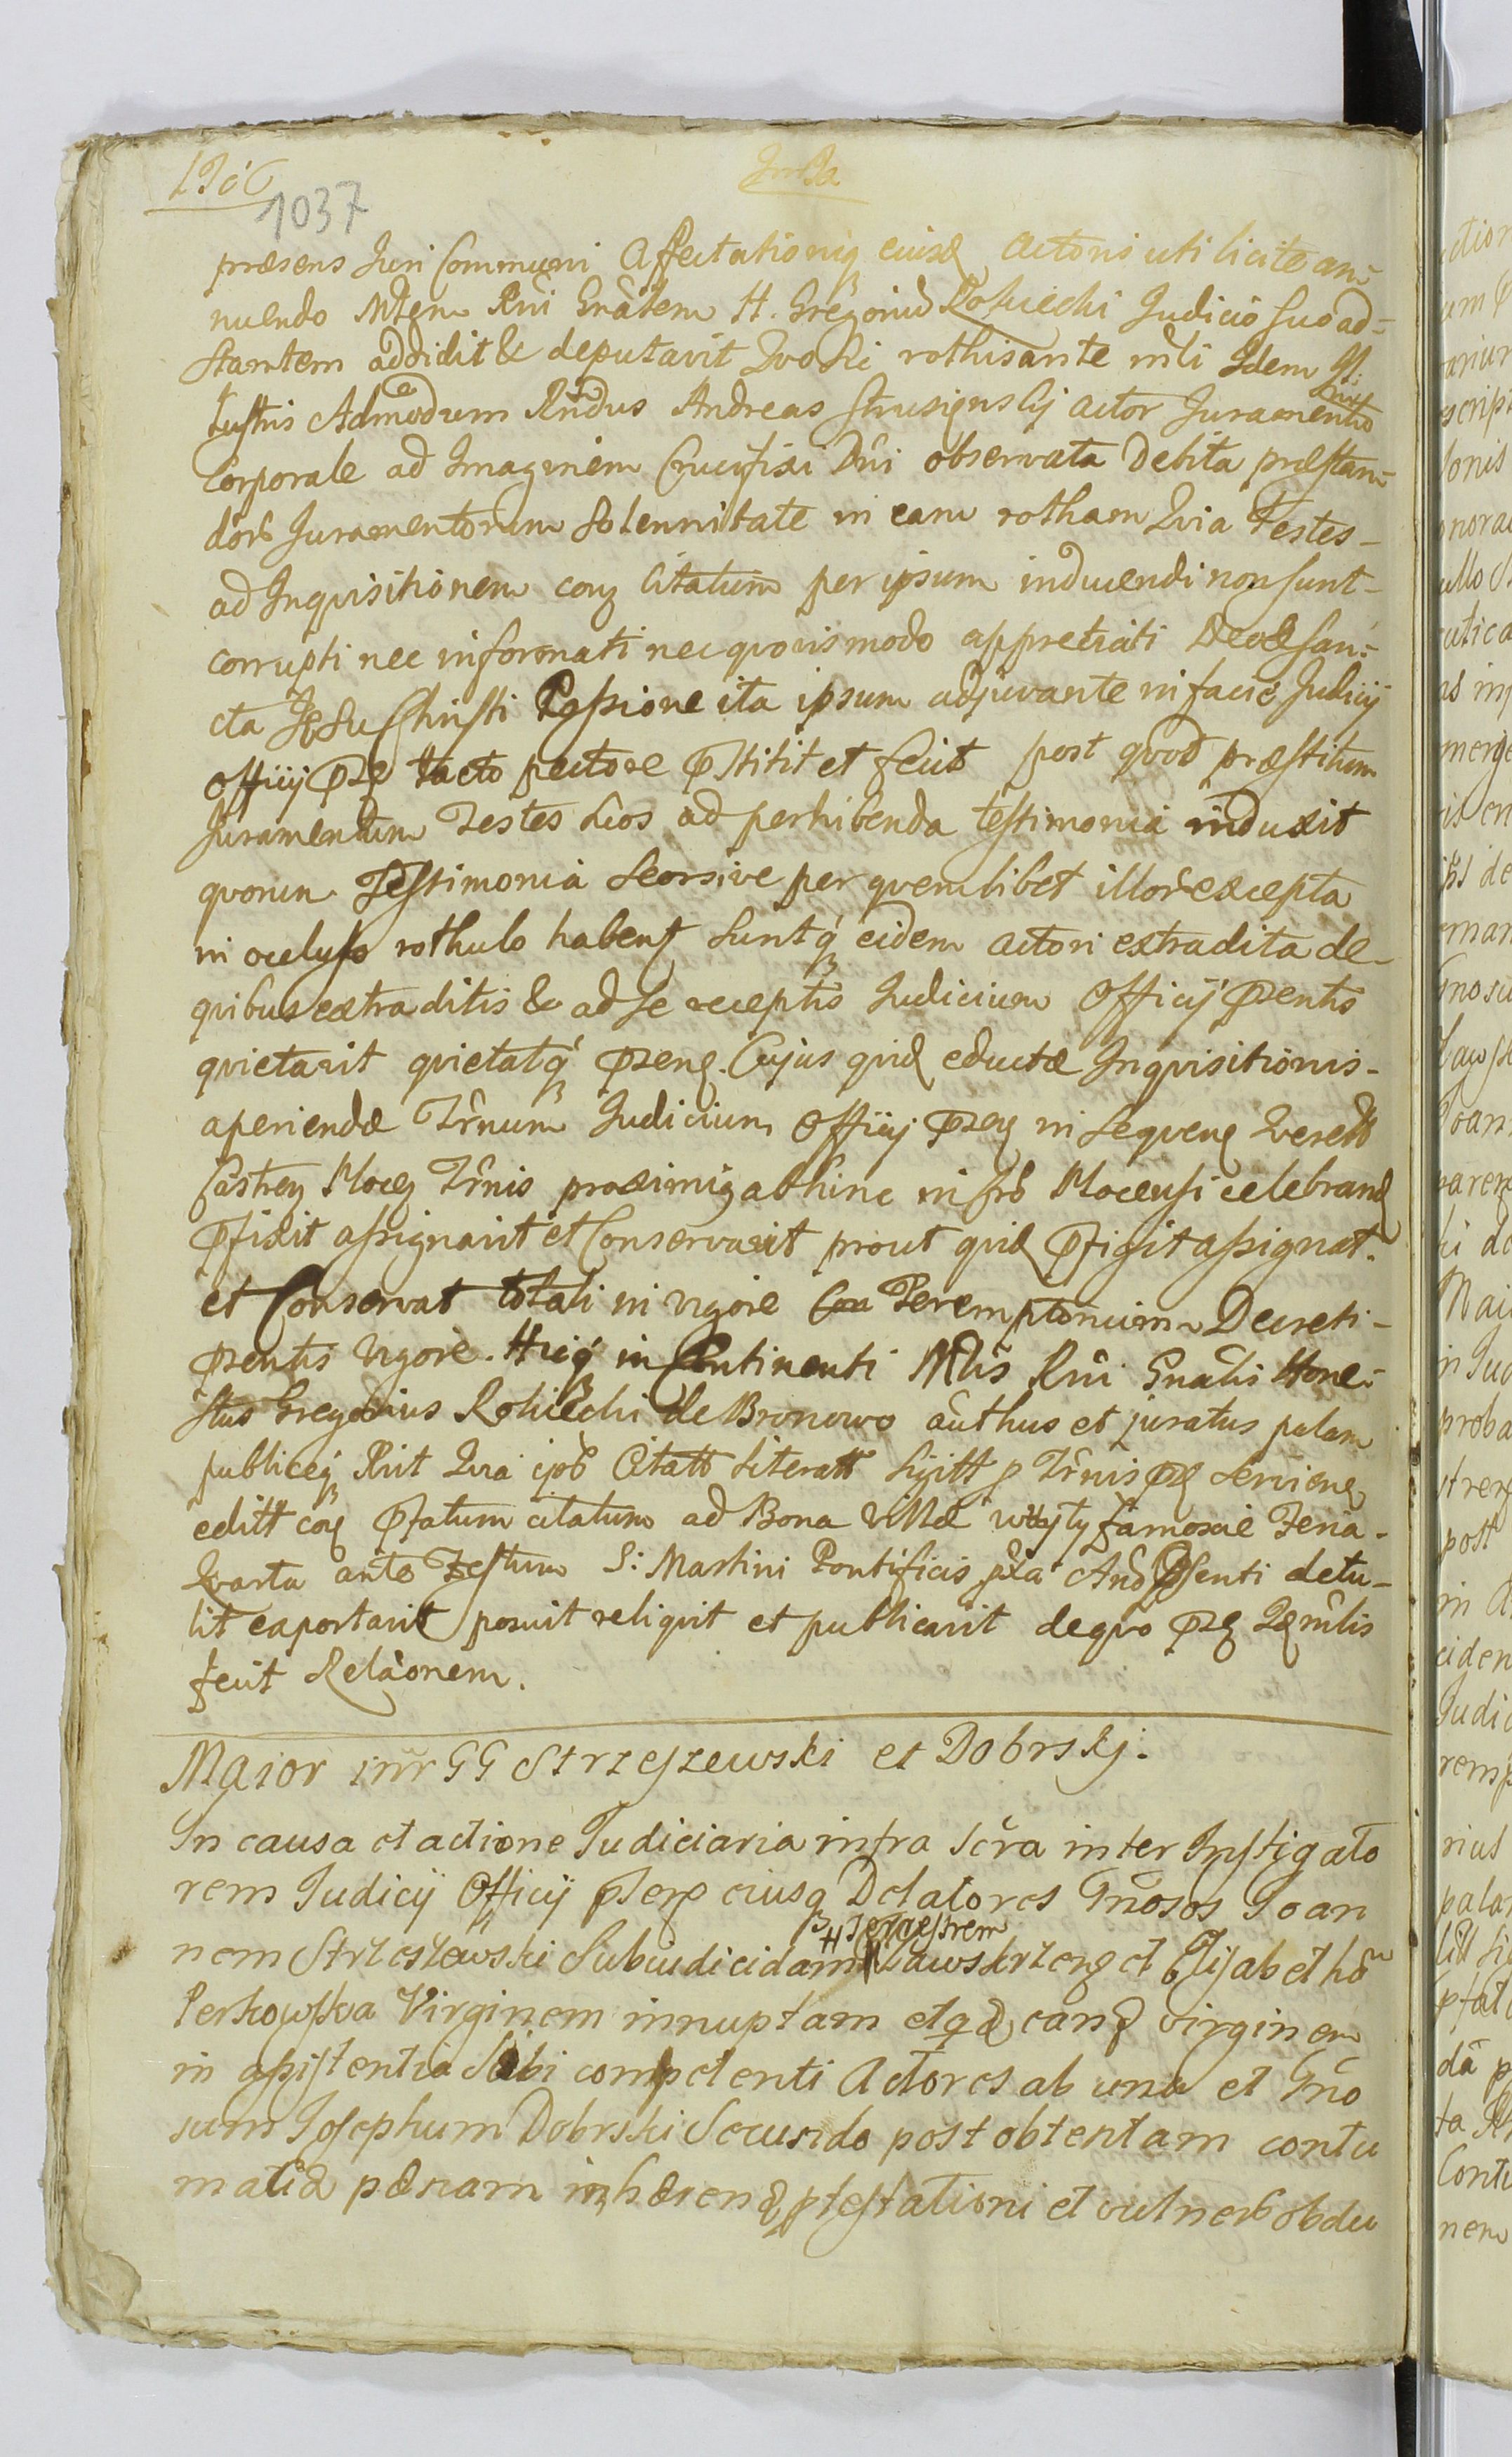 1037
præsens Juri Communi Affectationiq eiusd Actoris uti licite an-
nuendo Mtem Rni Gnâlem H. Gregoriu Rokicki Judicio suo ad-
stantem addidit & deputavit Quo rothisante mli Idem Il-
lustris Admodum Rndus Andreas Actor Juramento
Corporale ad Imaginem Crucifixi Dni observata Debita præstan-
dorb Juramentorum Solennitate in eam rotham Quia Testes-
ad Inquisitionem conq Citatum per ipsum inducendi non sunt-
corrupti nec informati nec quovismodo appretiati Deo & San-
cta Jesu Christi Passione ita ipsum adjuvante in facie Judicij
Officij tacto pectore pstitit et fecit post quod præstitum
Juramentum Testes suos ad perhibenda testimonia induxit
quorum Testimonia seorsive per quemlibet illor excepta
in rothulo habent suntq eidem actori extradita de-
quibus extraditis & ad se receptis Judicium Officij pzentis
quietavit quietatq pzenq. Cujus quid eductæ Inquisitionis-
aperiendæ Trnum Judicium Officij pzen in sequenq Querell
Castren Plocen Trnis proximiq abhinc in frô Plocensi celebrand
pfixit assignavit et Conservavit prout quid pfigit assignat.
et Conservat totali in vigore Peremptorium Decreti-
pzentis vigore. Hicq in Continenti Mtlis Rni Gnâlis Hone-
stus Gregorius Rokicki de Bronowo authus et juratus palam
publiceq Rvit Quia ipse Citatt Literatt Sigitt p Trnis pz Serviene
editt conq pfatum citatum ad Bona Villæ famosæ Feria-
Quarta ante Festum S: Martini Pontificis pxa Ano psenti detu-
lit exportavit posuit reliquit et publicavit de quo pz Mrlis
fecit Relâonem.
Maior inr GG Strzeszewski et Dobrskj.
In causa et actione Judiciaria infra Scra inter Instigato
rem Judicij Officij pzen eiusq Delatores Gnosos Joan
nem Strzeszewski Subiudicidam Zawskrzenq et Elisabethâ
Perkowska Virginem innuptam etqd eanq virginem
in assistentia Sibi competenti Actores ab una et Gno
sum Josephum Dobrski Secundo post obtentam contu
matiæ pænam inhæren ptestationi et vulnerb obdu